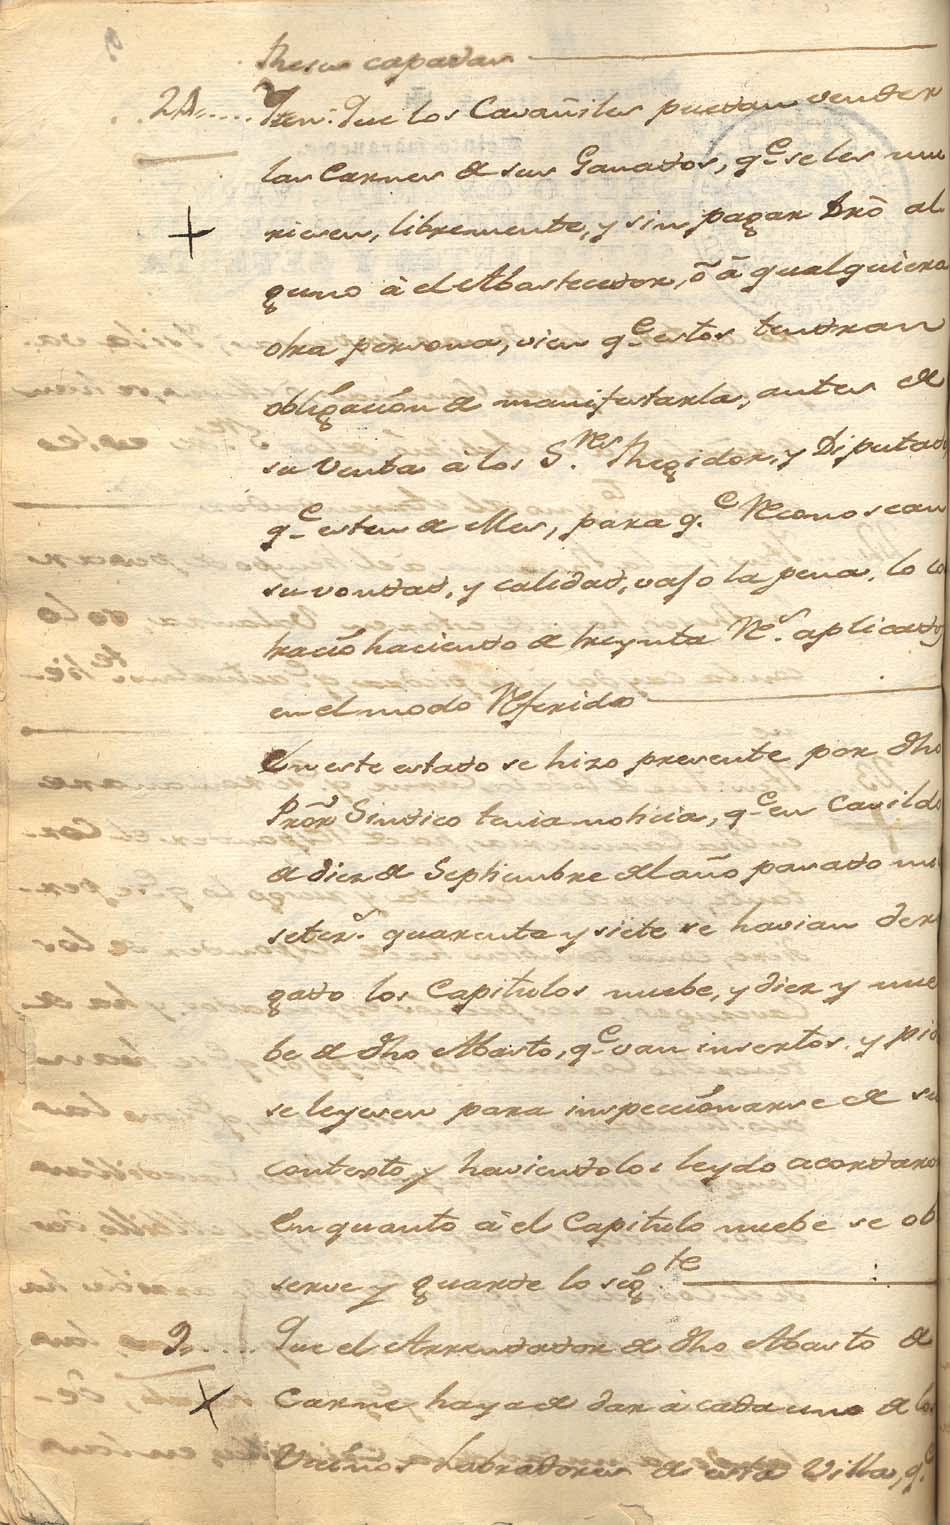 Reses capadas
21.... Yten: Que los Cavañiles puedan vender
las Carnes de sus Ganados, q.e se les mu
riesen, libremente, y sin pagar Dro al
guno à el Abastecedor, ò à qualquiera
otra persona, vien q.e estos tendran
obligación de manifestarla, antes de
su Venta à los S.res Regidor, y Diputado
q.e esten de Mes, para q.e Reconoscan
su vondad, y calidad, vajo la pena, lo co
trario haciendo de treynta R.s aplicados
en el modo Referido
En este estado se hizo presente por dho
Pror Sindico tenia noticia, q.e en Cavildo
de diez de Septiembre del año pasado mil
seter.s quarenta y siete se havian dero
gado los Capitulos nuebe, y diez y nue
be de dho Abasto, q.e van insertos, y pid
se leyesen para inspeccionarse de su
contexto, y haviendolos leydo acordaron
En quanto à el Capitulo nuebe se ob
serve y guarde lo seg.te
9.... Que el Arrendador de dho Abasto de
Carne haya de dar à cada uno de los
Vecinos Labradores de esta Villa, q.e